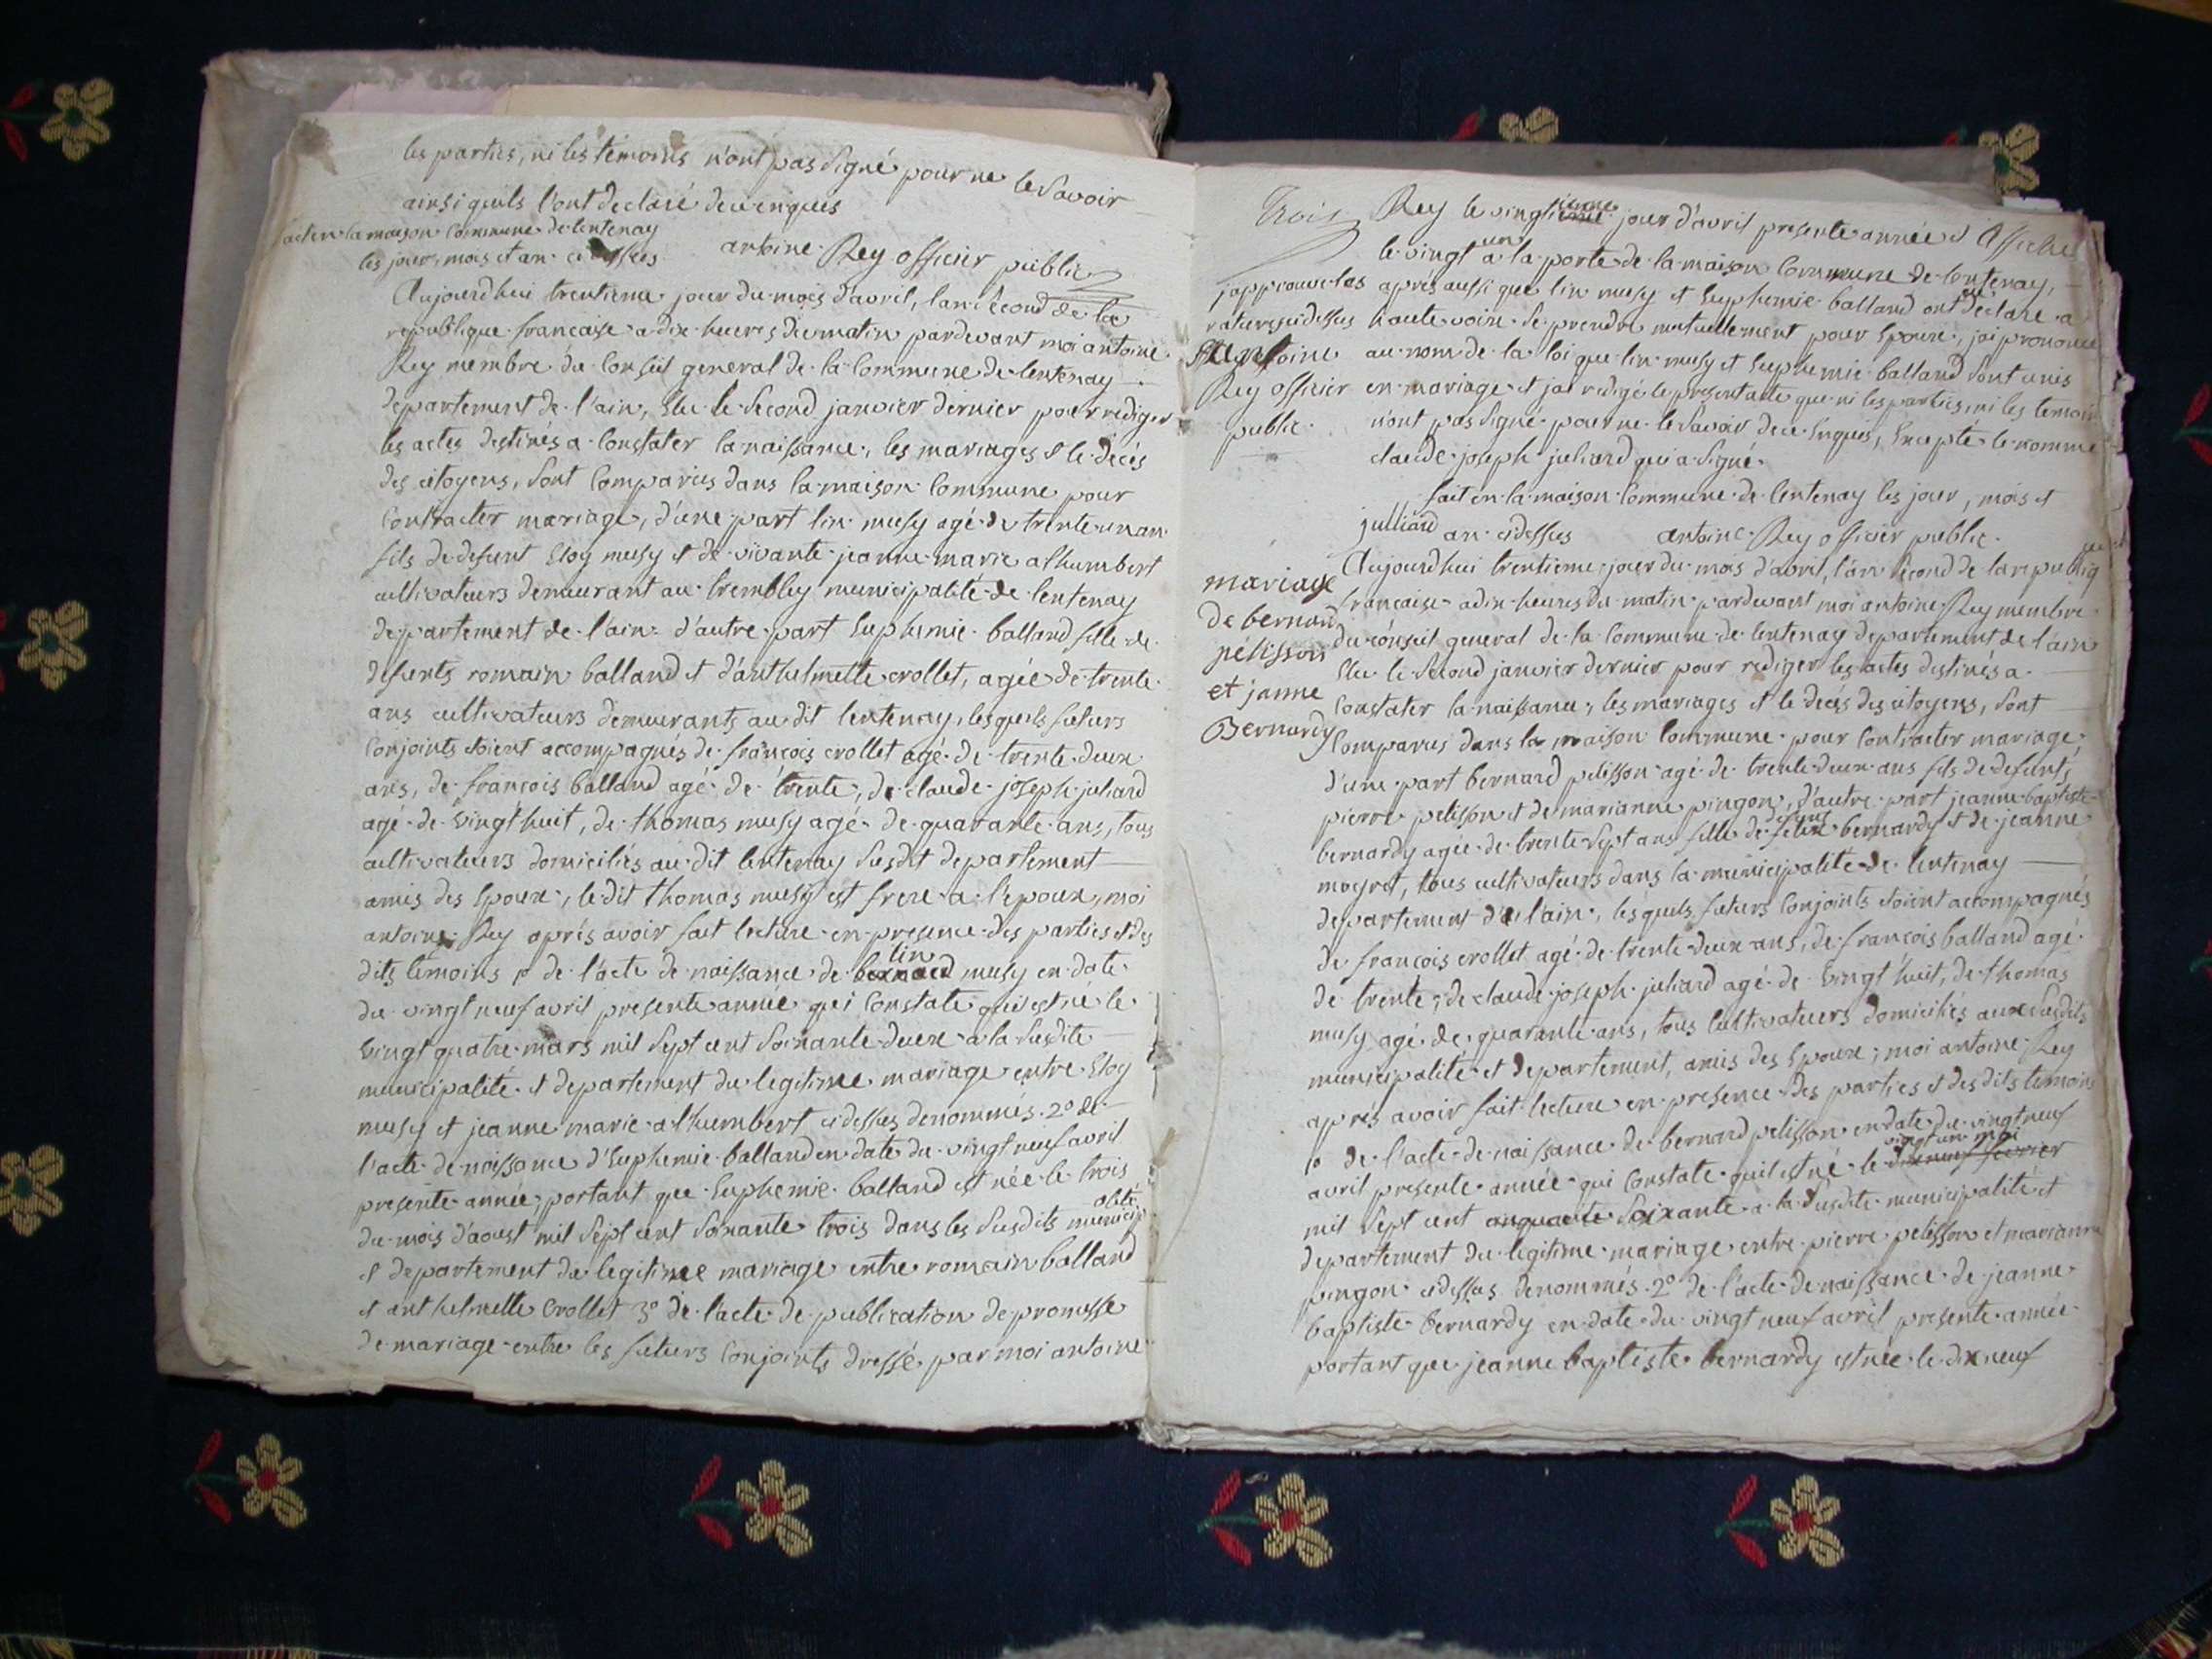 les parties, ni les témoins n'ont pas signé pour ne le savoir
ainsi quils l'ont declaré de ce enquis
fait en la maison commune de lentenay
les jour, mois et an ci dessus antoine Rey officier public
Aujourdhui trentieme jour du mois d'avril, lan second de la
republique francaise a dix heures du matin pardevant moi antoine
Rey membre du conseil general de la commune de lentenay
departement de l'ain, Elu le second janvier dernier pour rediger
les actes destinés a constater la naissance, les mariages et le décès
des citoyens, sont comparus dans la maison commune pour
contracter mariage, d'une part lin musy agé de trente un an
fils de defunt Eloy musy et de vivante jeanne marie alhumbert
cultivateurs demeurant au trembley municipalité de lentenay
departement de l'ain d'autre part Euphemie balland fille de
defunts romain balland et d'anthelmette crollet, agée de trente
ans cultivateurs demeurants au dit lentenay, lesquels futurs
conjoints etoient accompagnés de françois crollet agé de trente deux
ans, de françois balland agé de trente, de claude joseph juliard
agé de vingt huit, de thomas musy agé de quarante ans, tous
cultivateurs domiciliés au dit lentenay susdit departement
amis des Epoux, le dit thomas musy est frere a l'epoux, moi
antoine Rey aprés avoir fait lecture en presence des parties et des
dits temoins 1º de l'acte de naissance de bernard lin musy en date
du vingt neuf avril presente année qui constate quil est né le
vingt quatre mars mil sept cent soixante deux a la susdite
municipalité et departement du legitime mariage entre Eloy
musy et jeanne marie alhumbert ci dessus denommés 2º de
l'acte de naissance d'Euphemie balland en date du vingt neuf avril
presente année, portant que Euphemie balland est née le trois
du mois d'aoust mil sept cent soixante trois dans les susdits municipalité
et departement du legitime mariage entre romain balland
et anthelmette crollet 3º de l'acte de publication de promesse
de mariage entre les futurs conjoints dressé par moi antoine
Trois
Rey le vingtieme jour d'avril presente année et affiché
le vingt un a la porte de la maison commune de lentenay,
aprés aussi que lin musy et Euphemie balland ont déclaré a
haute voix se prendre mutuellement pour Epoux, jai prononcé
au nom de la loi que lin musy et Euphemie balland sont unis
en mariage et jai redigé le present acte que ni les parties, ni les temoins
n'ont pas signé pour ne le savoir de ce Enquis, Excepté le nommé
claude joseph juliard qui a signé
j'approuve les
ratures ci dessus
antoine
Rey officier
public
fait en la maison commune de lentenay les jour, mois et
an ci dessus antoine Rey officier public
julliard
mariage
de bernard
pélisson
et janne
Bernardy
Aujourdhui trentieme jour du mois d'avril, l'an second de la republique
francaise a dix heures du matin pardevant moi antoine Rey membre
du conseil general de la commune de lentenay departement de l'ain
Elu le second janvier dernier pour rediger les actes destinés a
constater la naissance, les mariages et le decés des citoyens, sont
comparus dans la maison commune pour contracter mariage,
d'une part bernard pelisson agé de trente deux ans fils de defunts
pierre pelisson et de marianne pingon, d'autre part jeanne baptiste
bernardy agée de trente sept ans fille de defunt felix bernardy et de jeanne
moyret, tous cultivateurs dans la municipalité de lentenay
departement de l'ain, lesquels futurs conjoints etoient accompagnés
de françois crollet agé de trente deux ans, de françois balland agé
de trente, de claude joseph juliard agé de vingt huit, de thomas
musy agé de quarante ans, tous cultivateurs domiciliés aux susdits
municipalité et departement, amis des Epoux; moi antoine Rey
aprés avoir fait lecture en presence des parties et des dits temoins
1º de l'acte de naissance de bernard pelisson en date du vingt neuf
avril presente année qui constate quil est né le dix neuf fevrier vingt un mai
mil sept cent cinquante soixante a la susdite municipalité et
departement du legitime mariage entre pierre pelisson et marianne
pingon ci dessus denommés 2º de l'acte de naissance de jeanne
baptiste bernardy en date du vingt neuf avril presente année
portant que jeanne baptiste bernardy est née le dix neuf